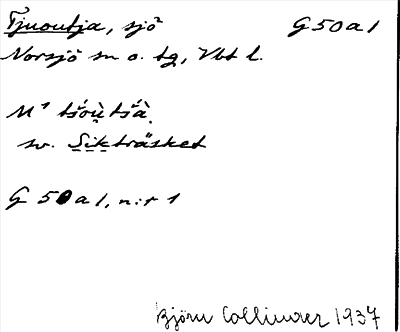 Tjuoutja, sjö G 50 a 1
Norsjö sn o. tg, Vbt l.
M¹ tśoù̯tśà.
sv. Sikträsket
G 50 a 1, n:r 1
Björn Collinder 1937